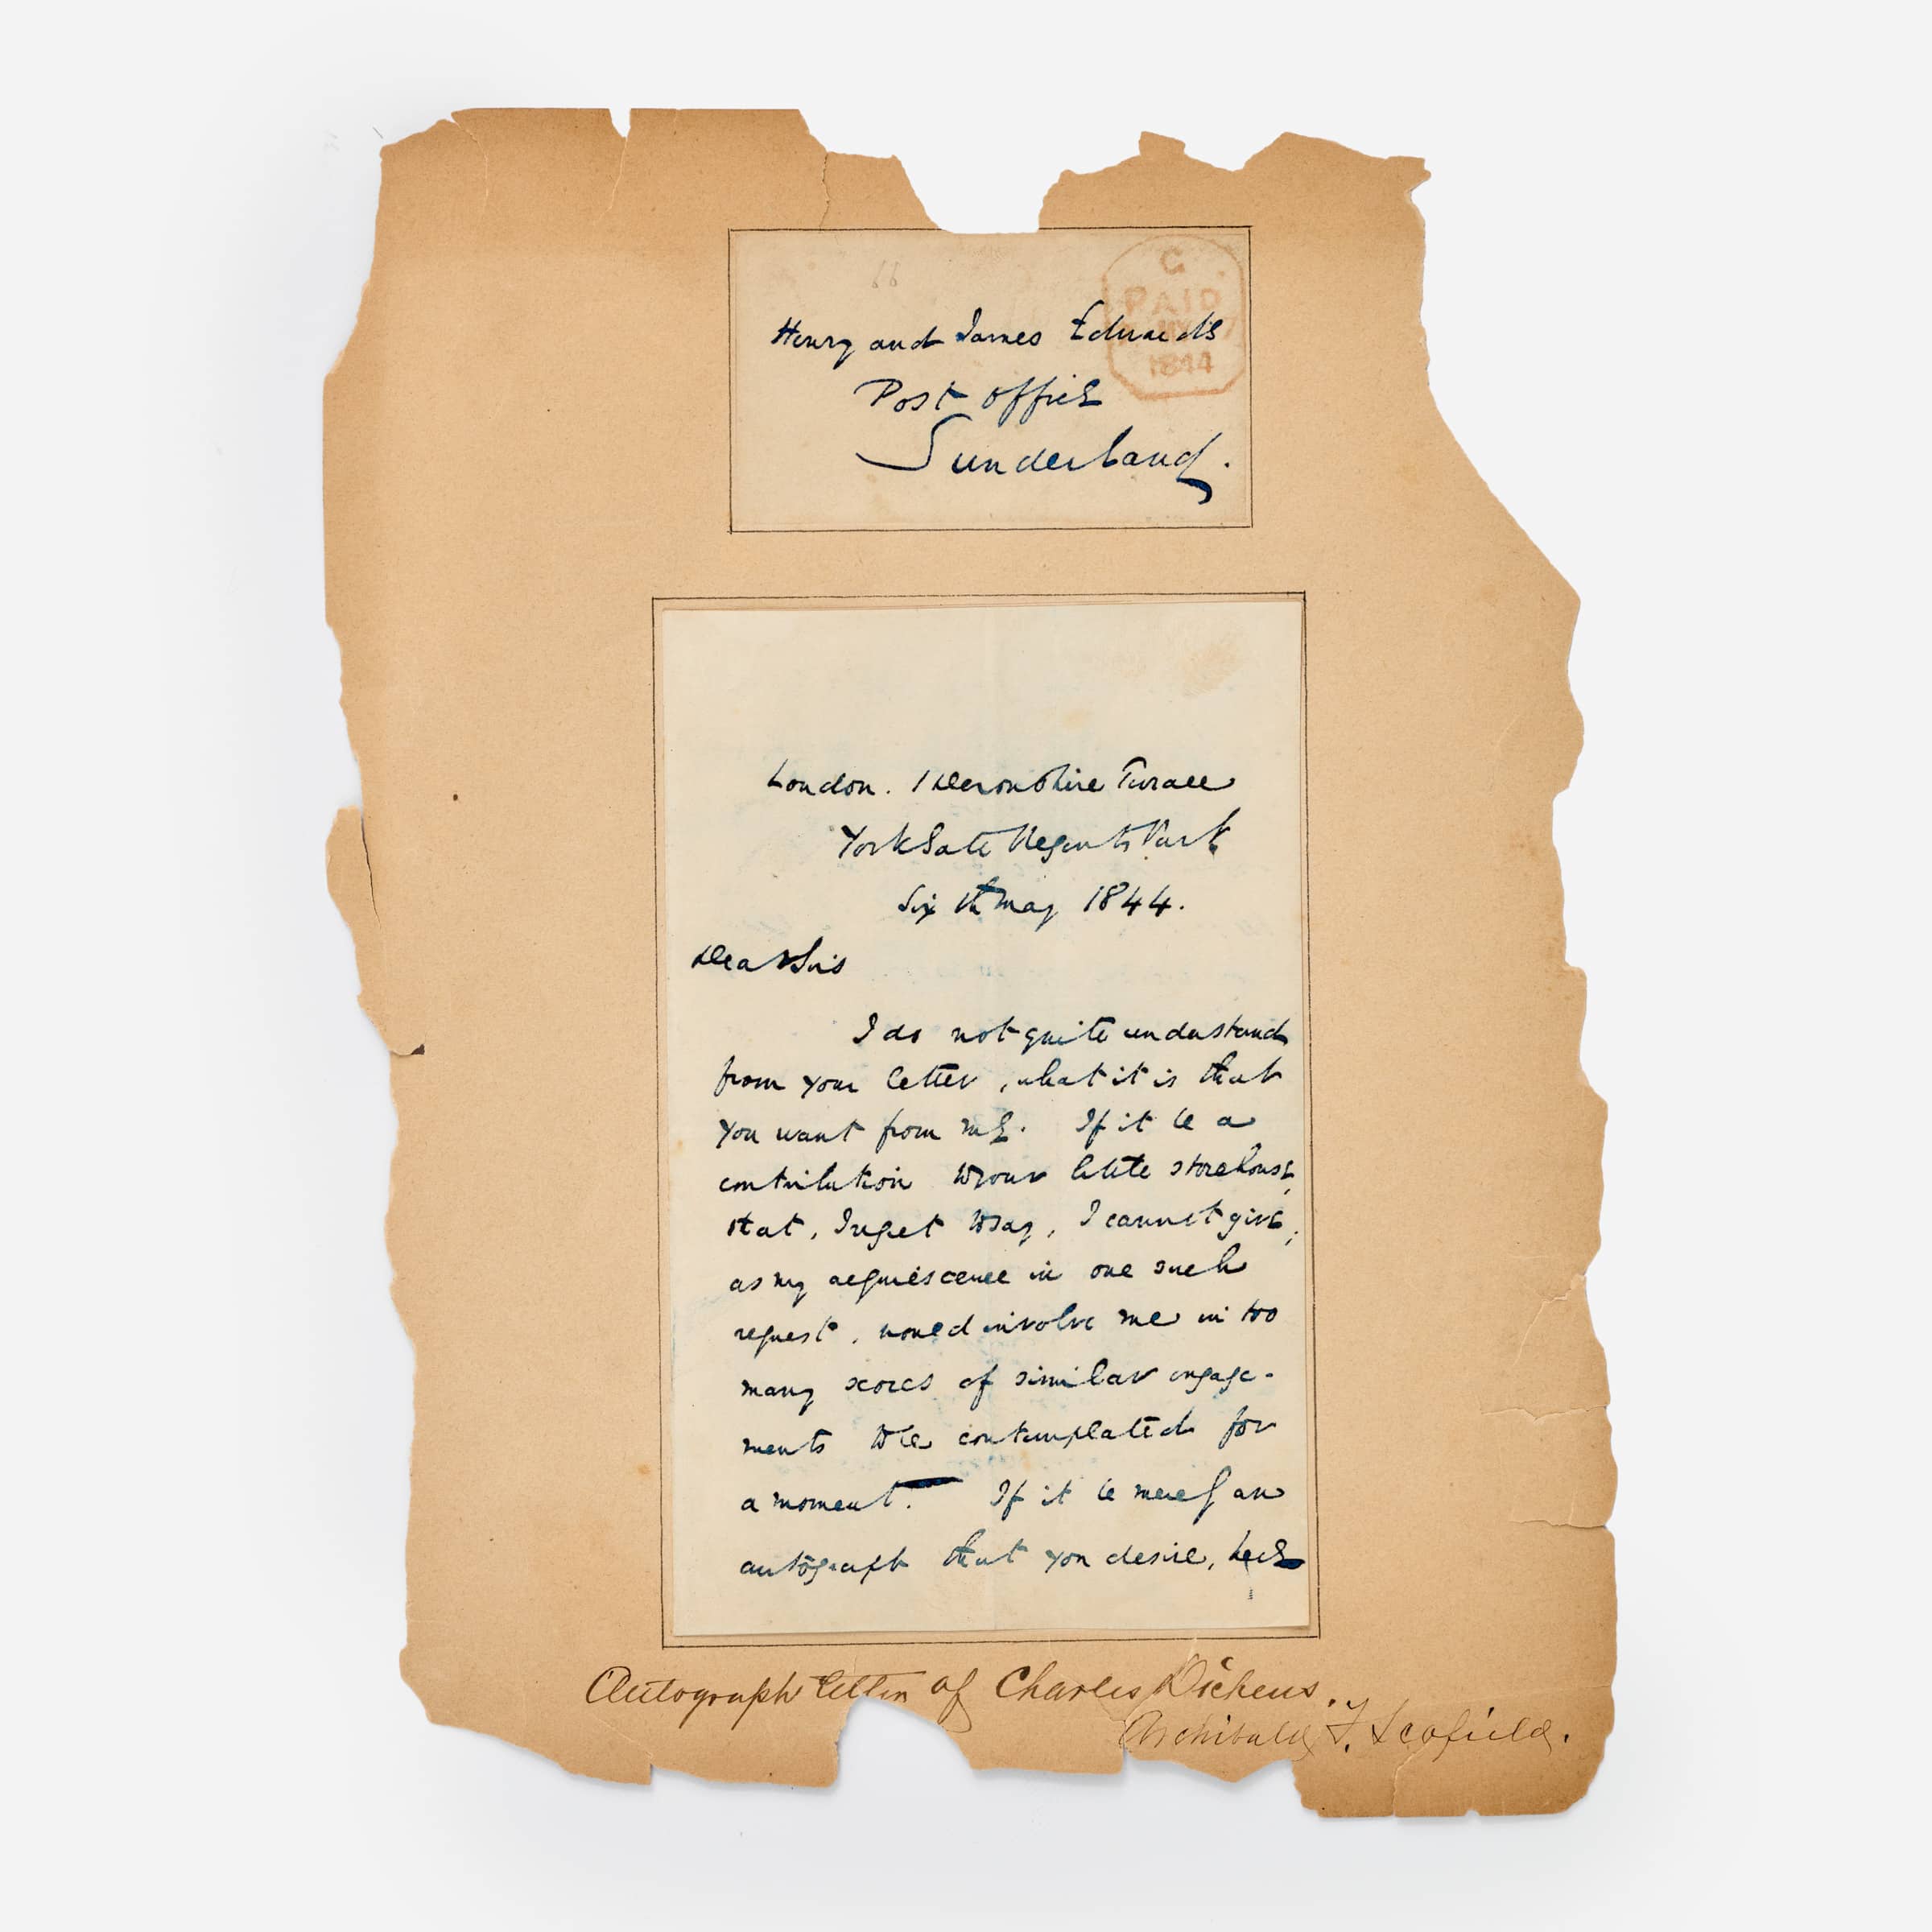 66
C
PAID
MY 7
1844
Henry and James Edwards
Post office
Sunderland.
London. 1 Devonshire Terrace
York Gate Regents Park
Sixth May 1844.
Dear Sirs
I do not quite understand
from your letter, what it is that
you want from me. If it be a
contribution to your little storehouse,
that, I regret to say, I cannot give;
as my acquiescence in one such
request, would involve me in too
many scores of similar engage-
ments to be contemplated for
a moment. If it be merely an
autograph that you desire, here
Autograph letter of Charles Dickens.
Archibald F. Scofield.